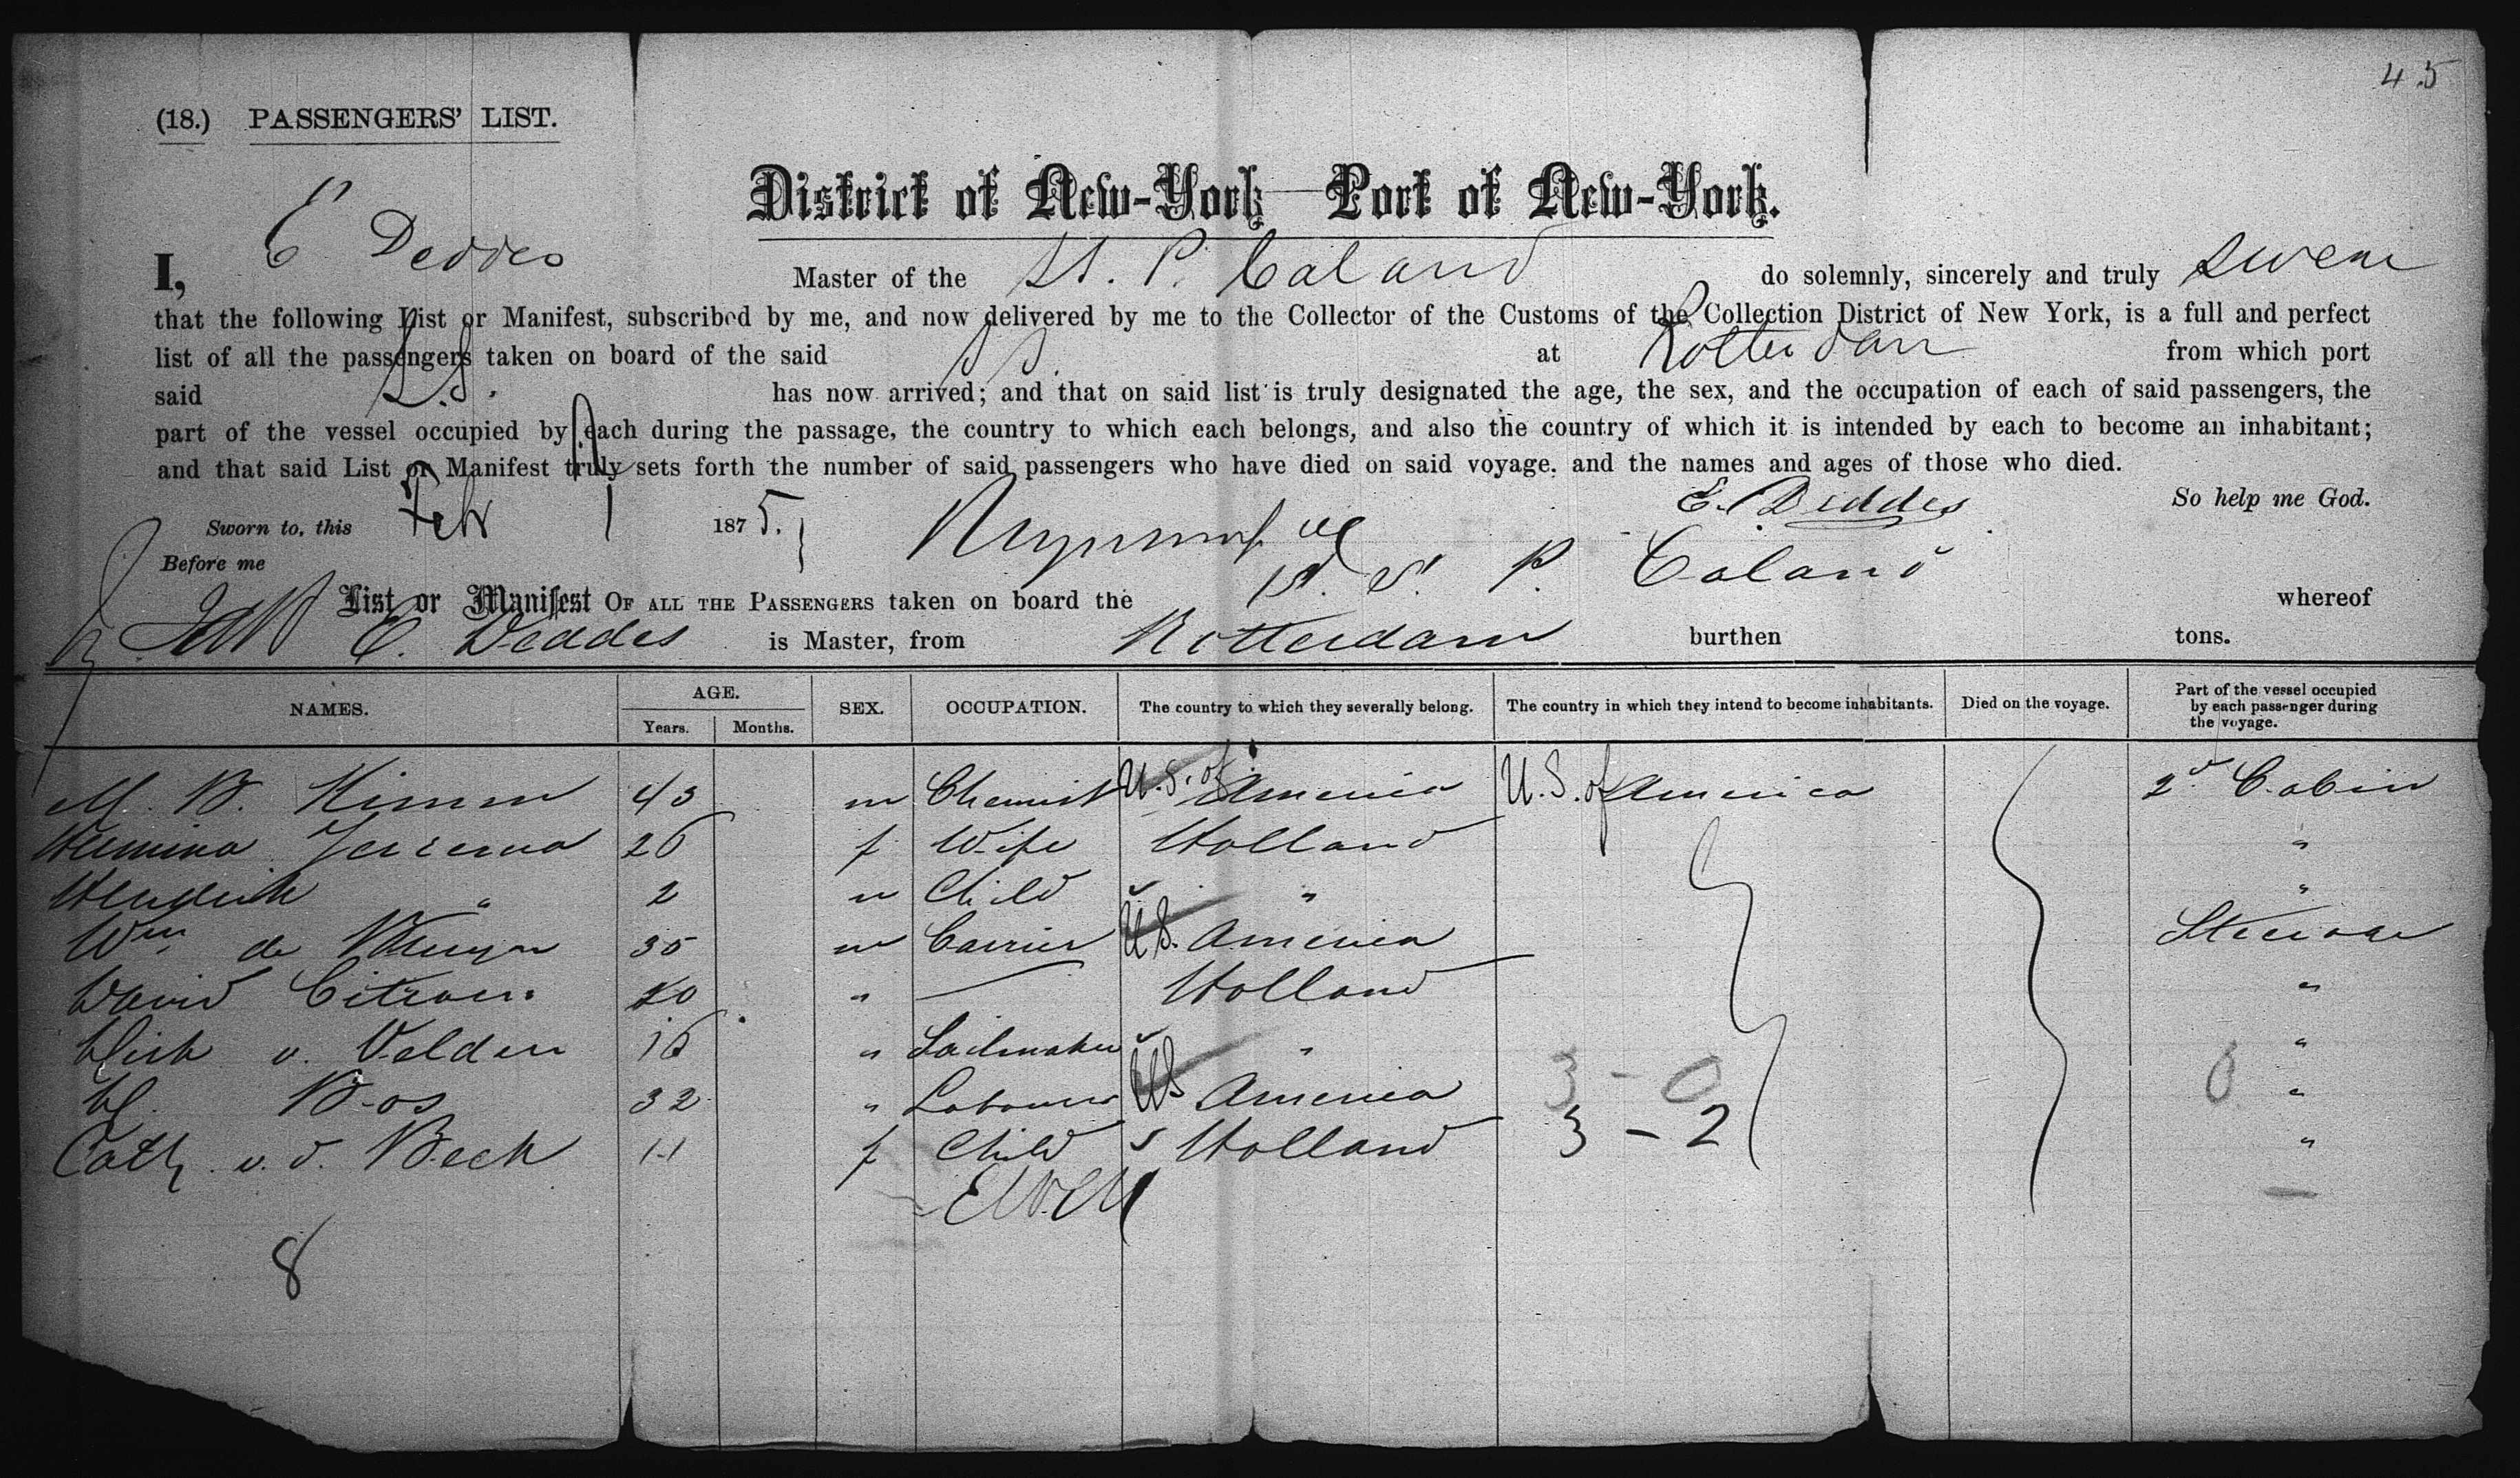 45
(18.) PASSENGERS' LIST.
District of New-York—Port of New-York.
I, E Deddes Master of the St. P. Caland do solemnly, sincerely and truly swear
that the following List or Manifest, subscribed by me, and now delivered by me to the Collector of the Customs of the Collection District of New York, is a full and perfect
list of all the passengers taken on board of the said S S. at Rotterdam from which port
said S.S. has now arrived; and that on said list is truly designated the age, the sex, and the occupation of each of said passengers, the
part of the vessel occupied by each during the passage, the country to which each belongs, and also the country of which it is intended by each to become an inhabitant;
and that said List or Manifest truly sets forth the number of said passengers who have died on said voyage. and the names and ages of those who died.
So help me God.
Sworn to, this Feb 1 1875. E. Deddes
Before me
List or Manifest OF ALL THE PASSENGERS taken on board the S. S. P. Caland whereof
E. Deddes is Master, from Rotterdam burthen tons.
NAMES. AGE. Years. Months. SEX. OCCUPATION. The country to which they severally belong. The country in which they intend to become inhabitants. Died on the voyage. Part of the vessel occupied by each passenger during the voyage.
M. B. 43 m Chemist U.S. of America U.S. of America 2d Cabin
26 f Wife Holland "
Hendrik " 2 m Child " "
Wm de 35 m Carrier U.S. America Steerage
David Citroen " — Holland "
Dirk v. Velden 16 " Sailmaker " "
Bos 32 " Labourer US America 3 - 0 0 "
Cath. v. d. Beek 11 f Child Holland 3 - 2 "
8